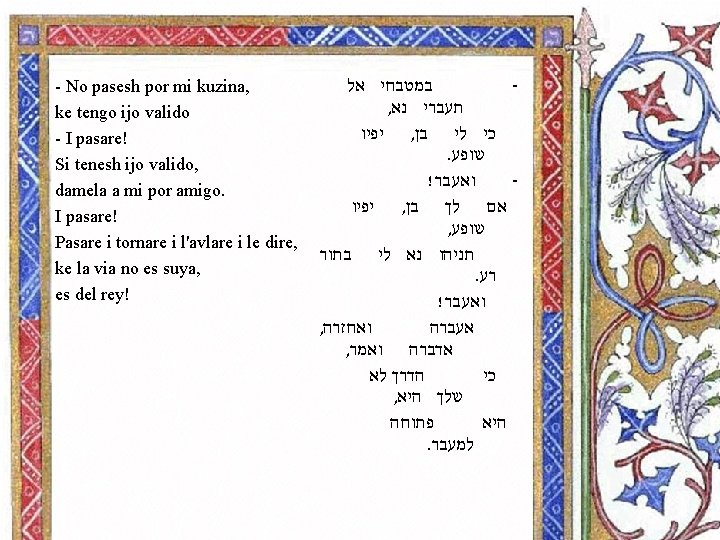 - No pasesh por mi kuzina,
ke tengo ijo valido
- I pasare!
Si tenesh ijo valido,
damela a mi por amigo.
I pasare!
Pasare i tornare i l'avlare i le dire,
ke la via no es suya,
es del rey!
- במטבחי אל
תעברי נא,
כי לי בן, יפיו
שופע.
- ואעבר!
אם לך בן, יפיו
שופע,
תניחו נא לי בתור
רע.
ואעבר!
אעברה ואחזרה,
אדברה ואמר,
כי הדרך לא
שלך היא,
היא פתוחה
למעבר.